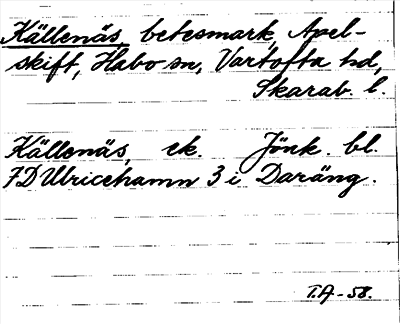 Källenäs, betesmark, Apel-
skift, Habo sn, Vartofta hd,
Skarab. l.
Källenäs, ek. Jönk. bl.
7D Ulricehamn 3 i Daräng.
T.A-58.